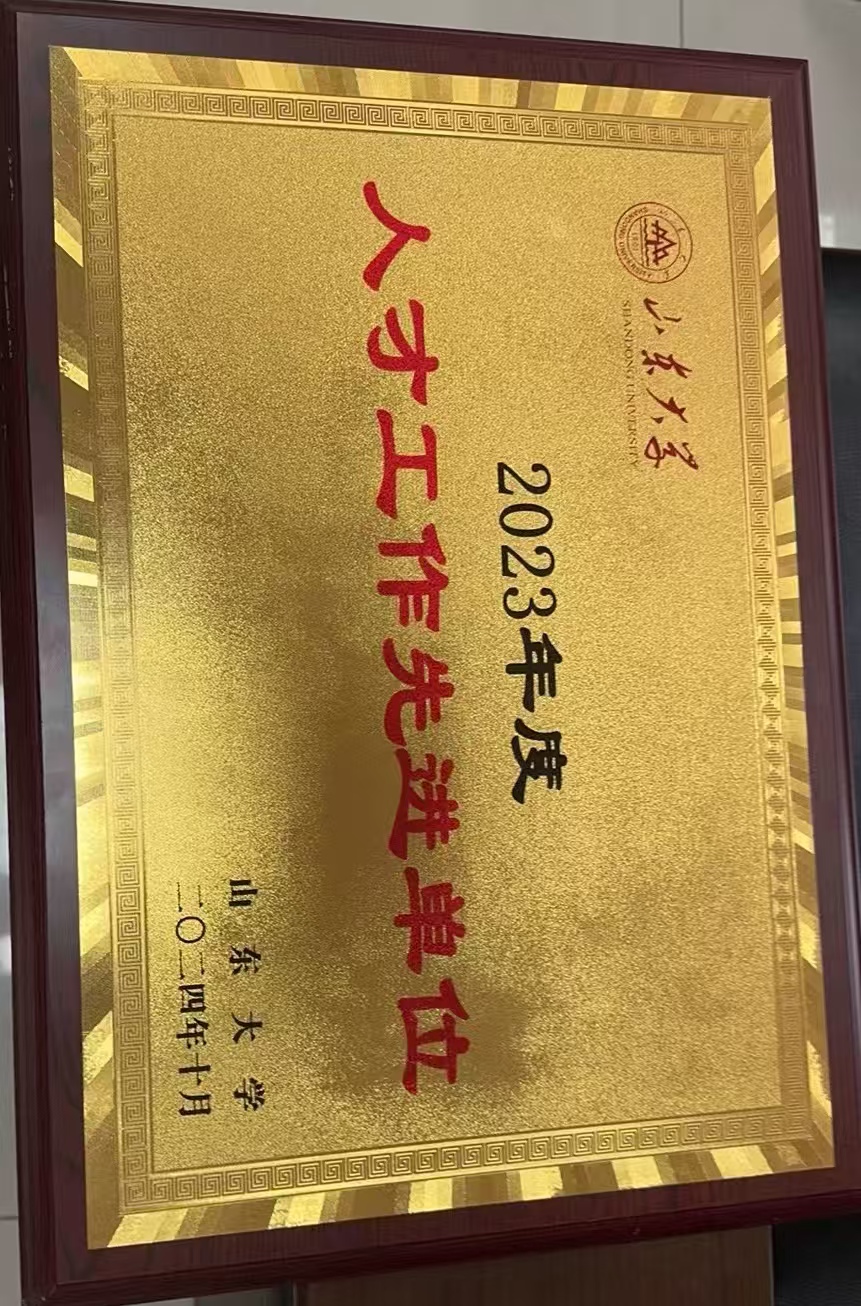 山东大学
SHANDONG UNIVERSITY
2023年度
人才工作先进单位
山东大学
二〇二四年十月